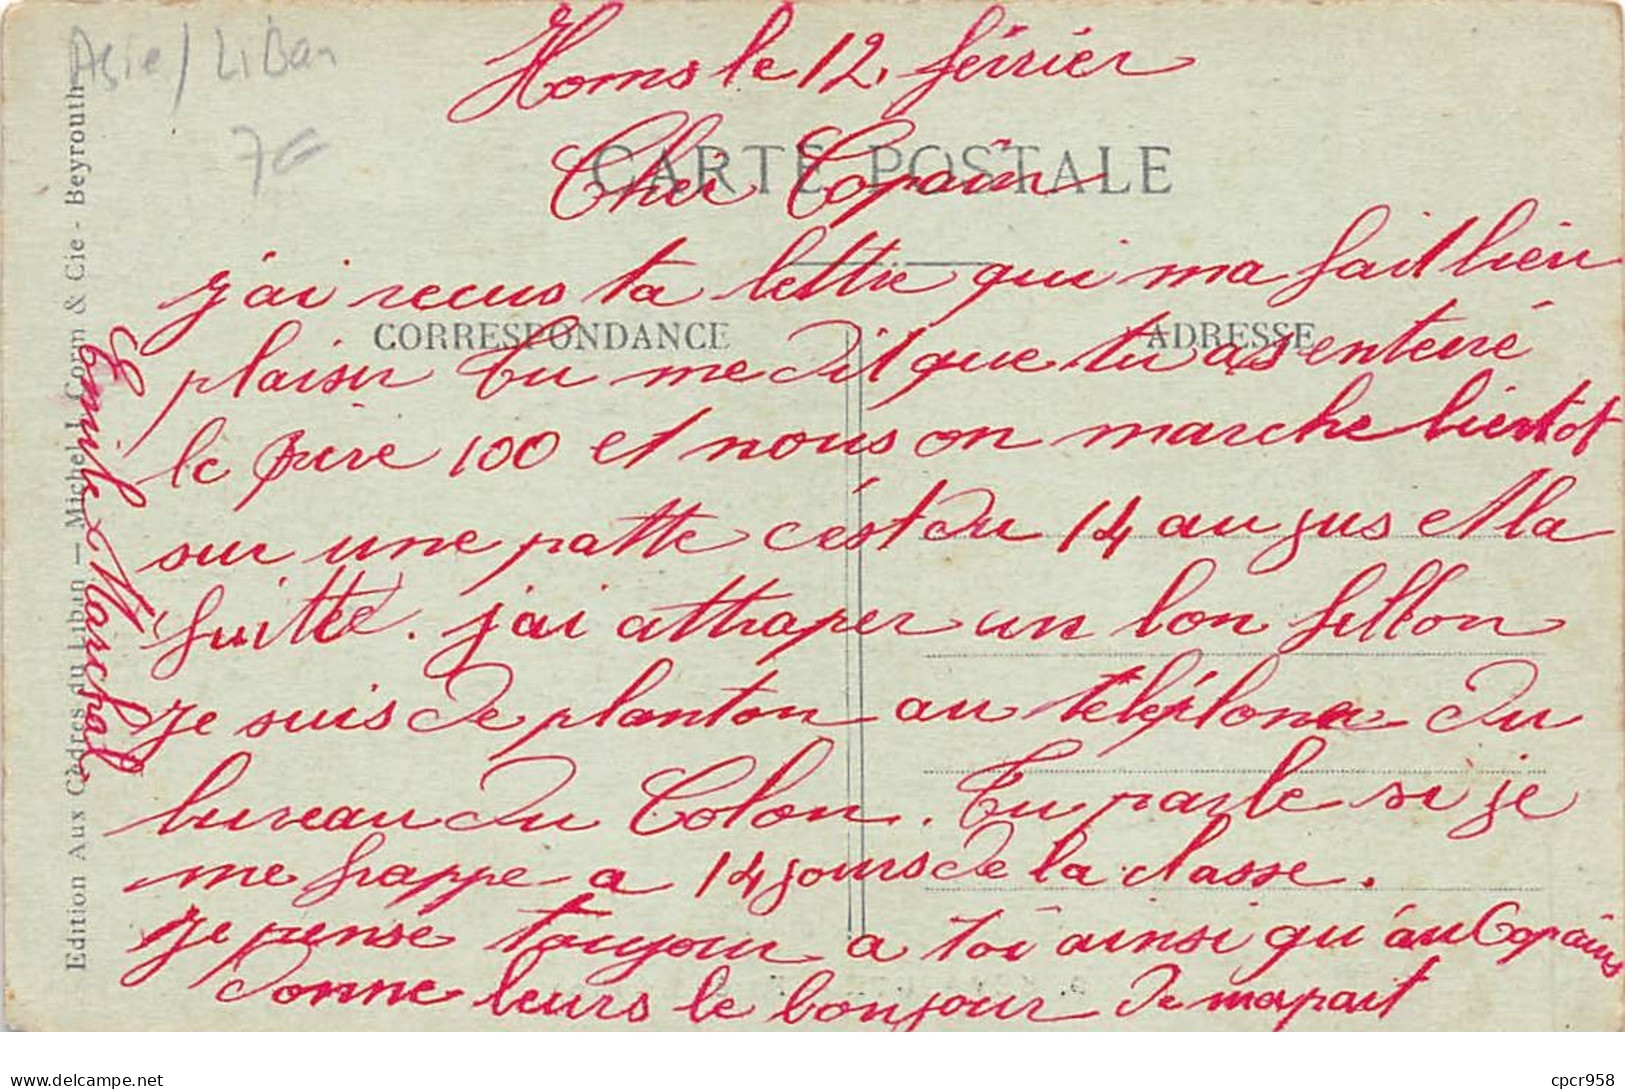 Asie / Liban
7€
Homs le 12 février
Cher Copain
CARTE POSTALE
j'ai recus ta lettre qui ma fait bien
CORRESPONDANCE
ADRESSE
plaisir tu me dit que tu as enterré
le père 100 et nous on marche bientot
sur une patte c'est du 14 au jus et la
suitte. j'ai attraper un bon fillon
je suis de planton au télephone du
bureau du Colon. Tu parle si je
me frappe a 14 jours de la classe.
je pense toujour a toi ainsi qu'au Copains
donne leurs le bonjour de ma part
Emile Marchal
Edition Aux Cèdres du Liban — Michel I. Corm & Cie - Beyrouth
delcampe.net
cpcr958